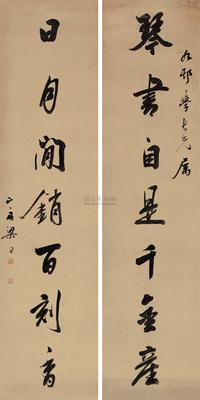 琴書自是千金產
日月閒銷百刻香
學長兄屬
梁